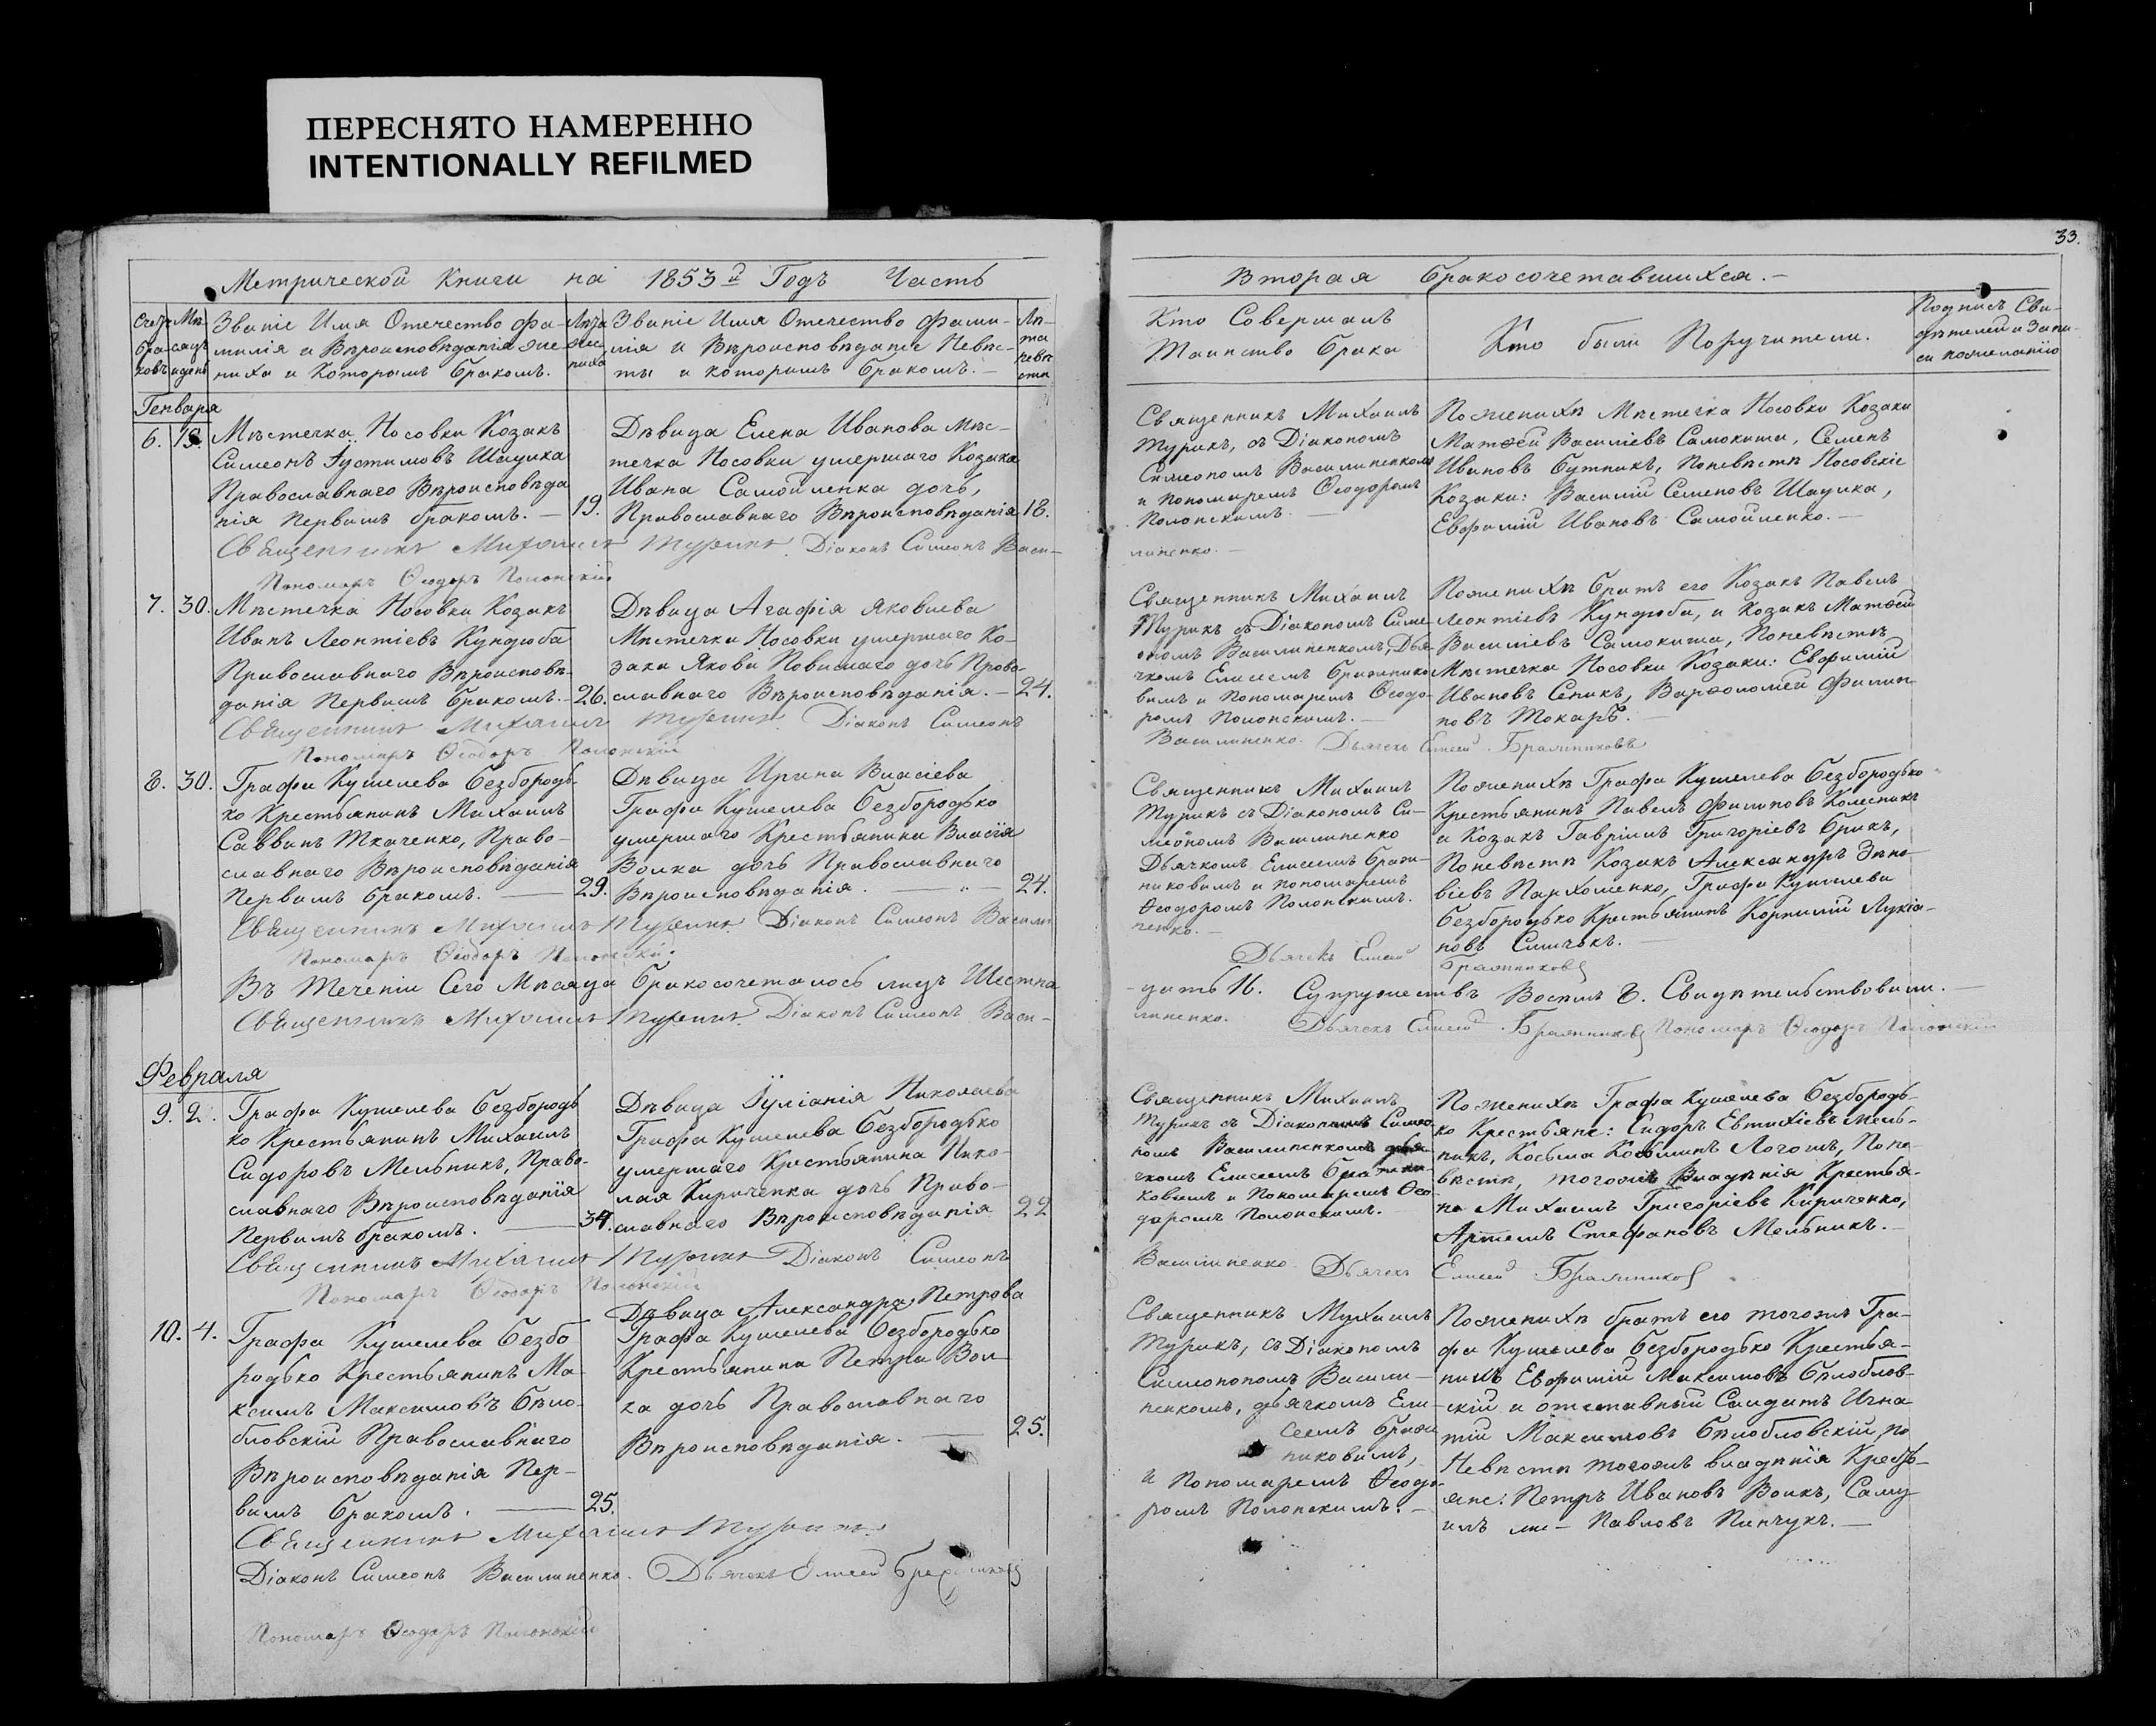 ПЕРЕСНЯТО НАМЕРЕННО
INTENTIONALLY REFILMED
33.
Метрической Книги на 1853й Годъ Часть
Вторая бракосочетавшихся.—
Счетъ браковъ
Мѣсяцъ и день
Званіе Имя Отечество Фа-
милія и Вѣроисповѣданія Же-
ниха и Которымъ бракомъ.
Лѣта жениха
Званіе Имя Отечество Фами-
лія и Вѣроисповѣданіе Невѣс-
ты и которымъ бракомъ.—
Лѣ-
та
невѣ
сты
Кто Совершалъ
Таинство брака
Кто были Поручители.
Подпись Сви-
дѣтелей и Запи-
си по желанію
Генваря
6. 18.
Мѣстечка Носовки Козакъ
Симеонъ Іустиновъ Шаулка
Православнаго Вѣроисповѣда
нія Первымъ бракомъ.— 19.
Дѣвица Елена Иванова Мѣс-
течка Носовки умершаго Козака
Ивана Самойленка дочь,
Православнаго Вѣроисповѣданія 18.
Священникъ Михаилъ
Турикъ, съ Діакономъ
Симеономъ Василиненкомъ
и пономаремъ Ѳеодоромъ
Полонскимъ.—
По женихѣ Мѣстечка Носовки Козаки
Матѳей Василіевъ Самокиша, Семенъ
Ивановъ Бутникъ, По невѣстѣ Носовскіе
Козаки: Василій Семеновъ Шаулка,
Евфимій Ивановъ Самойленко.—
Священникъ Михаилъ Турикъ. Діаконъ Симеонъ Васи-
линенко.—
Пономарь Ѳеодоръ Полонскій
7. 30.
Мѣстечка Носовки Козакъ
Иванъ Леонтіевъ Кундюба
Православнаго Вѣроисповѣ-
данія Первымъ бракомъ.— 26.
Дѣвица Агафія Яковлева
Мѣстечка Носовки умершаго Ко-
зака Якова дочь Право-
славнаго Вѣроисповѣданія.— 24.
Священникъ Михаилъ
Турикъ съ Діакономъ Симе-
ономъ Василиненкомъ, Дья-
чкомъ Елисеемъ Бражнико
вымъ и Пономаремъ Ѳеодо-
ромъ Полонскимъ.—
По женихѣ братъ его Козакъ Павелъ
Леонтіевъ Кундюба, и Козакъ Матѳей
Василіевъ Самокиша, По невѣстѣ
Мѣстечка Носовки Козаки: Евфимій
Ивановъ Сеникъ, Варѳоломей Филип-
повъ Токарь.—
Священникъ Михаилъ Турикъ. Діаконъ Симеонъ
Василиненко. Дьячекъ Елисей Бражниковъ
Пономарь Ѳеодоръ Полонскій
8. 30.
Графа Кушелева Безбородь-
ко Крестьянинъ Михаилъ
Саввинъ Ткаченко, Право-
славнаго Вѣроисповѣданія
Первымъ бракомъ.— 29.
Дѣвица Ирина Власіева
Графа Кушелева Безбородько
умершаго Крестьянина Власія
Волка дочь Православнаго
Вѣроисповѣданія.— 24.
Священникъ Михаилъ
Турикъ съ Діакономъ Си-
меономъ Василиненко
Дьячкомъ Елисеемъ Браж-
никовымъ и пономаремъ
Ѳеодоромъ Полонскимъ.
По женихѣ Графа Кушелева Безбородько
Крестьянинъ Павелъ Филиповъ Колесникъ
и Козакъ Гавріилъ Григоріевъ Брикъ,
По невѣстѣ Козакъ Александръ Зѣно-
віевъ Пархоменко, Графа Кушелева
Безбородько Крестьянинъ Корнилій Лукіа-
новъ Симчекъ.—
Священникъ Михаилъ Турикъ. Діаконъ Симеонъ Васили
ненко.—
Дьячекъ Елисей Бражниковъ
Пономарь Ѳеодоръ Полонскій.
Въ Теченіи Сего Мѣсяца бракосочеталось лицъ Шестна
-дцать 16. Супружествъ Восемь 8. Свидѣтельствовали.—
Священникъ Михаилъ Турикъ. Діаконъ Симеонъ Васи-
линенко. Дьячекъ Елисей Бражниковъ Пономарь Ѳеодоръ Полонскій
Февраля
9. 2.
Графа Кушелева Безбородь
ко Крестьянинъ Михаилъ
Сидоровъ Мельникъ, Право-
славнаго Вѣроисповѣданія
Первымъ бракомъ.— 34.
Дѣвица Іуліанія Николаева
Графа Кушелева Безбородько
умершаго Крестьянина Нико-
лая Кириченка дочь Право-
славнаго Вѣроисповѣданія 22
Священникъ Михаилъ
Турикъ съ Діакономъ Симео-
номъ Василиненкомъ дья
чкомъ Елисеемъ Бражни-
ковымъ и Пономаремъ Ѳео-
доромъ Полонскимъ.—
По женихѣ Графа Кушелева Безбородь-
ко Крестьяне: Сидоръ Евтихіевъ Мель-
никъ, Косьма Косьминъ Логошъ, По не-
вѣстѣ, тогожъ Владѣнія Крестья-
не Михаилъ Григоріевъ Кириченко,
Артемъ Стефановъ Мельникъ.—
Священникъ Михаилъ Турикъ Діаконъ Симеонъ
Василиненко Дьячекъ Елисей Бражниковъ
Пономарь Ѳеодоръ Полонскій
10. 4.
Графа Кушелева Безбо
родько Крестьянинъ Ма-
ксимъ Максимовъ Бѣло-
бловскій Православнаго
Вѣроисповѣданія Пер-
вымъ бракомъ.— 25.
Дѣвица Александра Петрова
Графа Кушелева Безбородько
Крестьянина Петра Вол-
ка дочь Православнаго
Вѣроисповѣданія.— 25.
Священникъ Михаилъ
Турикъ, съ Діакономъ
Симеонопомъ Васили-
ненкомъ, дьячкомъ Ели-
сеемъ Бражн
никовымъ,
и Пономаремъ Ѳеодо-
ромъ Полонскимъ.—
По женихѣ братъ его тогожъ Гра-
фа Кушелева Безбородько Крестья-
нинъ Евфимій Максимовъ Бѣлоблов-
скій и отставный Салдатъ Игна-
тій Максимовъ Бѣлобловскій, по
Невѣстѣ тогожъ владѣнія Крестъ-
яне: Петръ Ивановъ Волкъ, Саму
илъ Павловъ Пинчукъ.—
Священникъ Михаилъ Турикъ.
Діаконъ Симеонъ Василиненко. Дьячекъ Елисей Бражниковъ
Пономарь Ѳеодоръ Полонскій